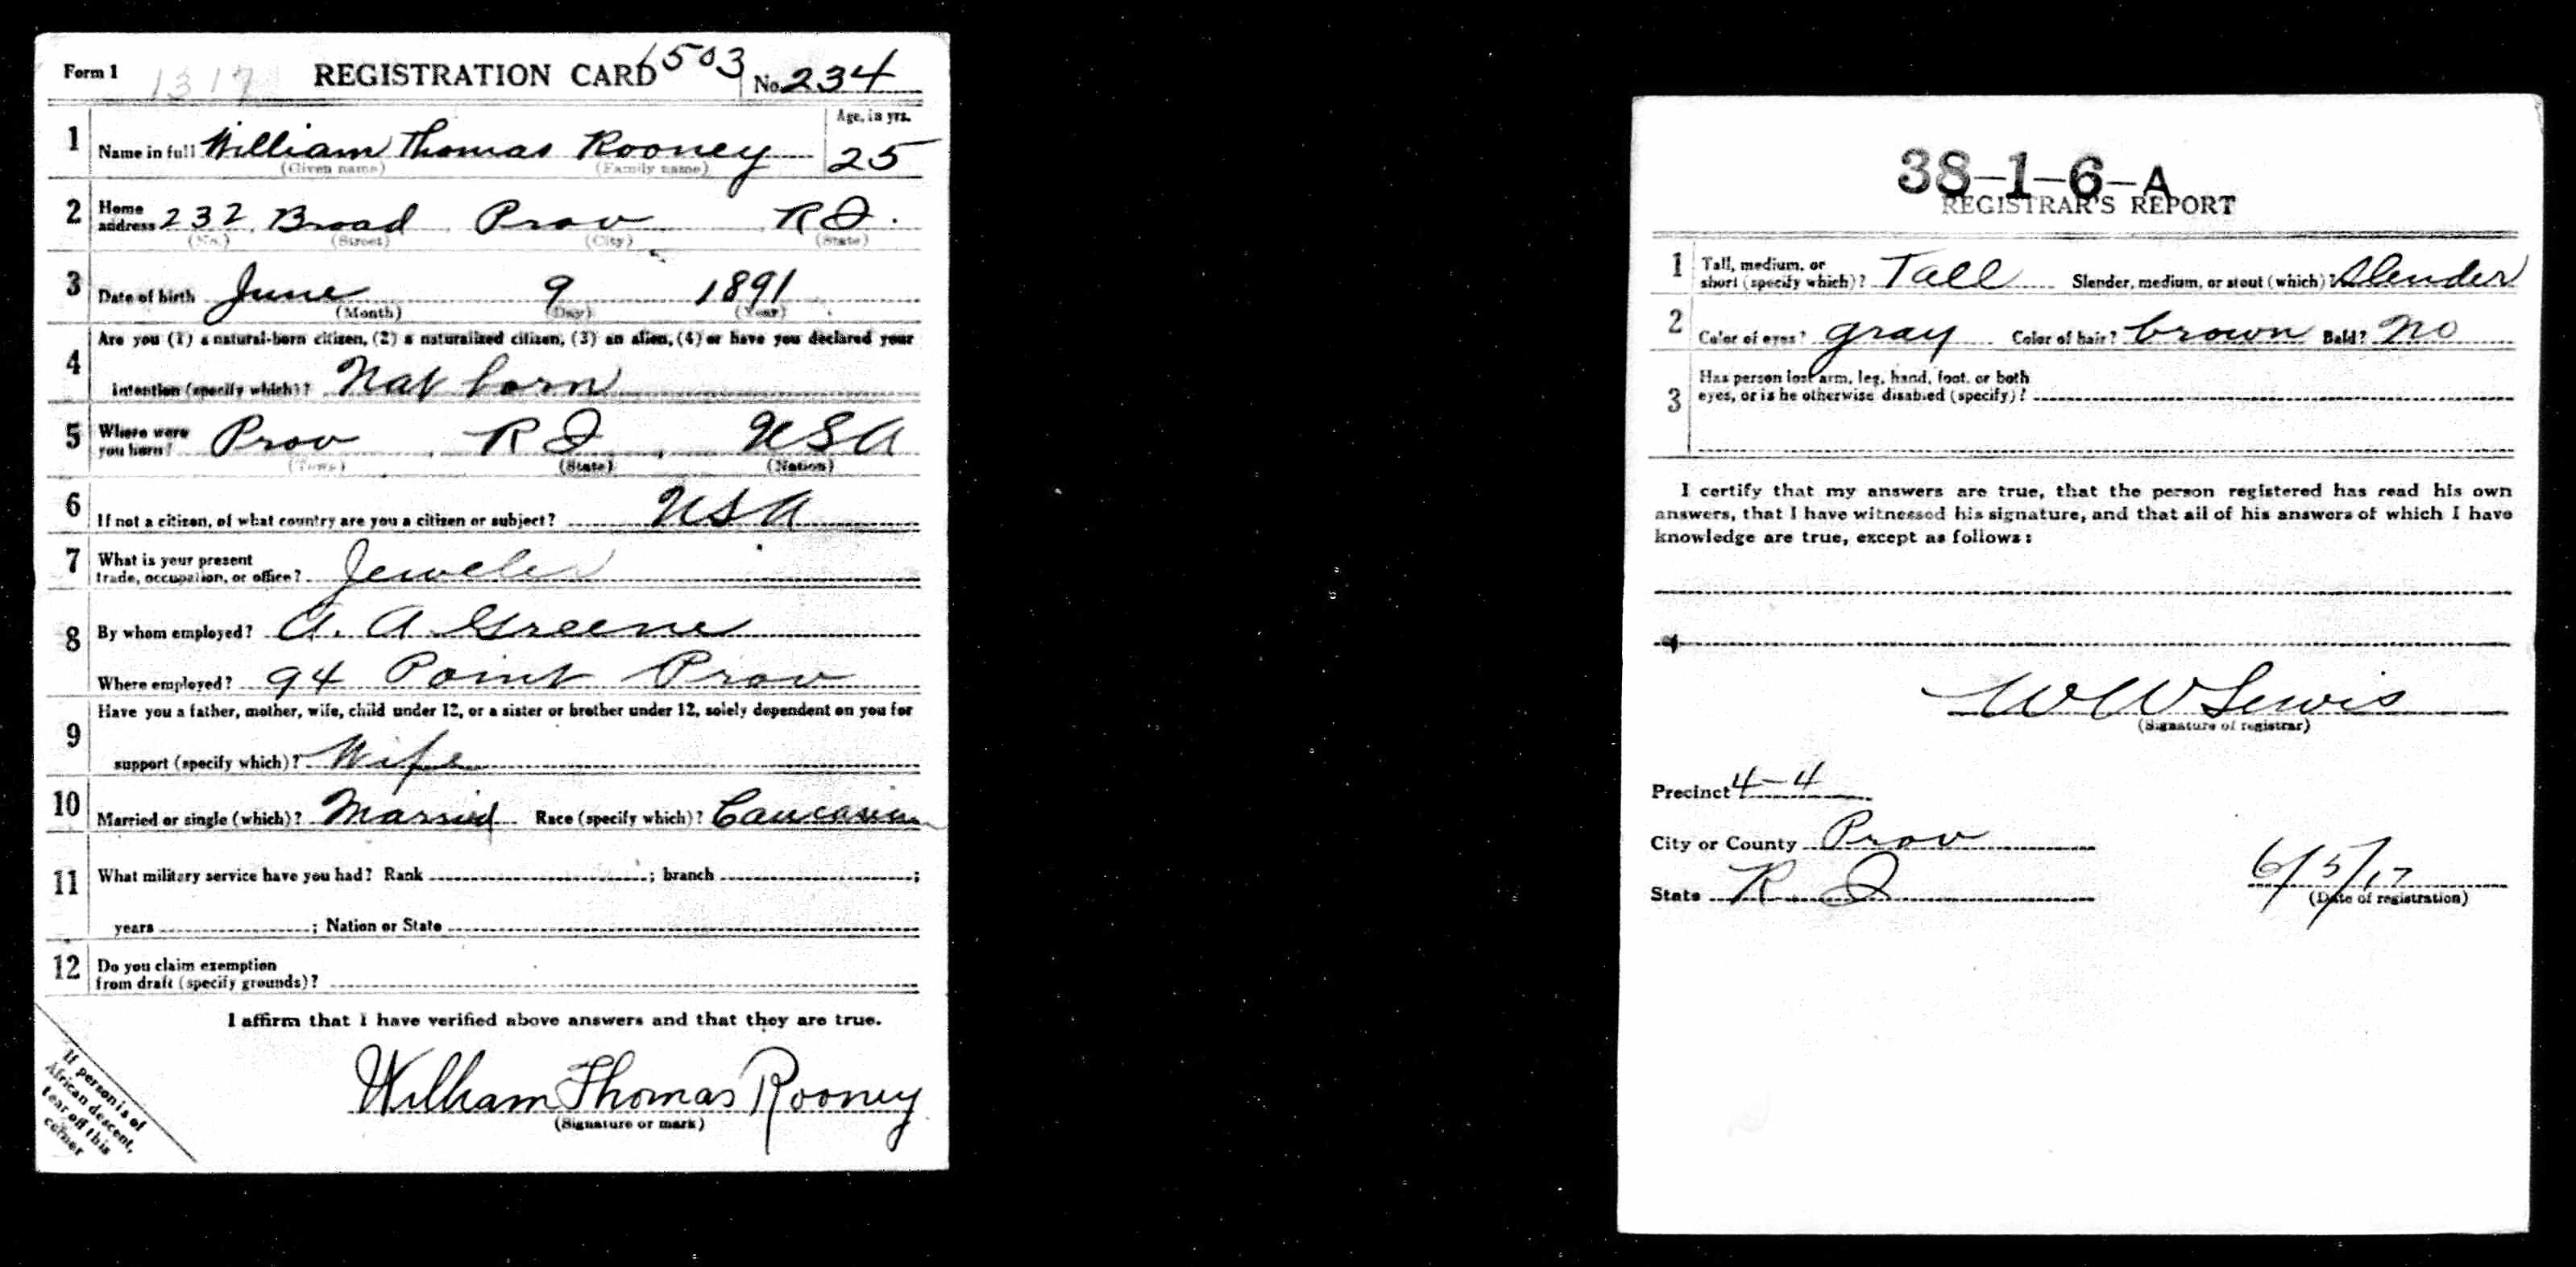 Form 1 1317 REGISTRATION CARD 1503 No. 234
1 Name in full William Thomas Rooney Age, in yrs. 25
(Given name) (Family name)
2 Home address 232 Broad Prov R I.
(No.) (Street) (City) (State)
3 Date of birth June 9 1891
(Month) (Day) (Year)
4 Are you (1) a natural-born citizen, (2) a naturalized citizen, (3) an alien, (4) or have you declared your
intention (specify which)? Nat born
5 Where were you born? Prov R I USA
(Town) (State) (Nation)
6 If not a citizen, of what country are you a citizen or subject? USA
7 What is your present
trade, occupation, or office? Jeweler
8 By whom employed? A. A Greene
Where employed? 94 Point Prov
9 Have you a father, mother, wife, child under 12, or a sister or brother under 12, solely dependent on you for
support (specify which)? Wife
10 Married or single (which)? Married Race (specify which)? Caucasian
11 What military service have you had? Rank ; branch ;
years ; Nation or State
12 Do you claim exemption
from draft (specify grounds)?
I affirm that I have verified above answers and that they are true.
William Thomas Rooney
(Signature or mark)
If person is of
African descent,
tear off this
corner
38-1-6-A
REGISTRAR'S REPORT
1 Tall, medium, or
short (specify which)? Tall Slender, medium, or stout (which)? Slender
2 Color of eyes? gray Color of hair? brown Bald? no
3 Has person lost arm, leg, hand, foot, or both
eyes, or is he otherwise disabled (specify)?
I certify that my answers are true, that the person registered has read his own
answers, that I have witnessed his signature, and that all of his answers of which I have
knowledge are true, except as follows:
W W Lewis
(Signature of registrar)
Precinct 4-4
City or County Prov
State R. I 6/5/17
(Date of registration)